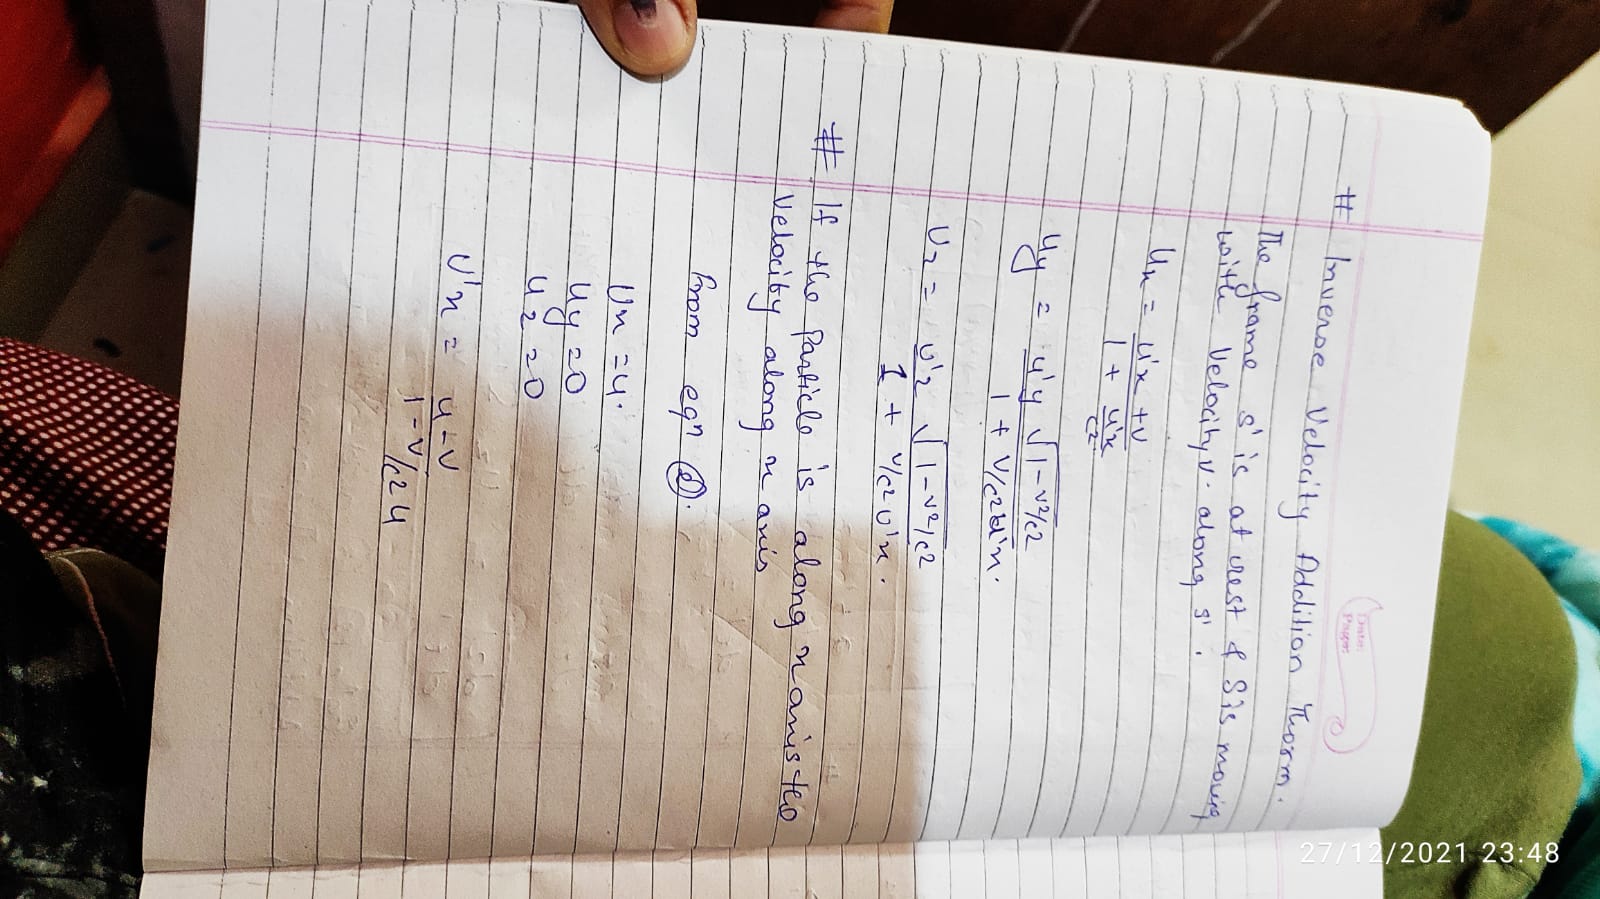 Date:
Page:
# Inverse Velocity Addition Thorm.
The frame s' is at rest & S is moving
with Velocity v. along s'.
Ux = u'x + v
1 + u'x
c2
Uy = u'y √1-v2/c2
1 + v/c2 u'x.
Uz = U'z √1-v2/c2
1 + v/c2 U'x.
# If the Particle is along x axis
Velocity along x axis
from eqn ②.
Ux = u.
Uy = 0
Uz = 0
U'x = u-v
1-v/c2 u
27/12/2021 23:48